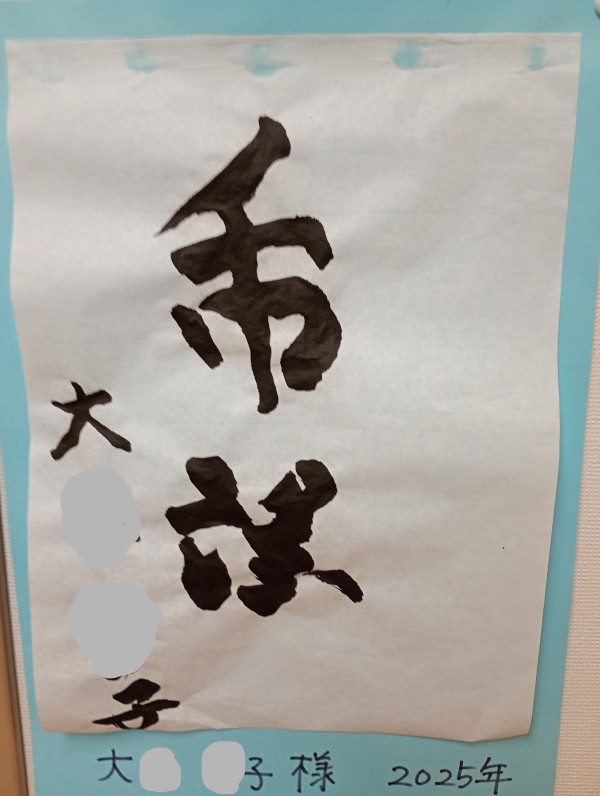 希望
大
子
大 子様 2025年